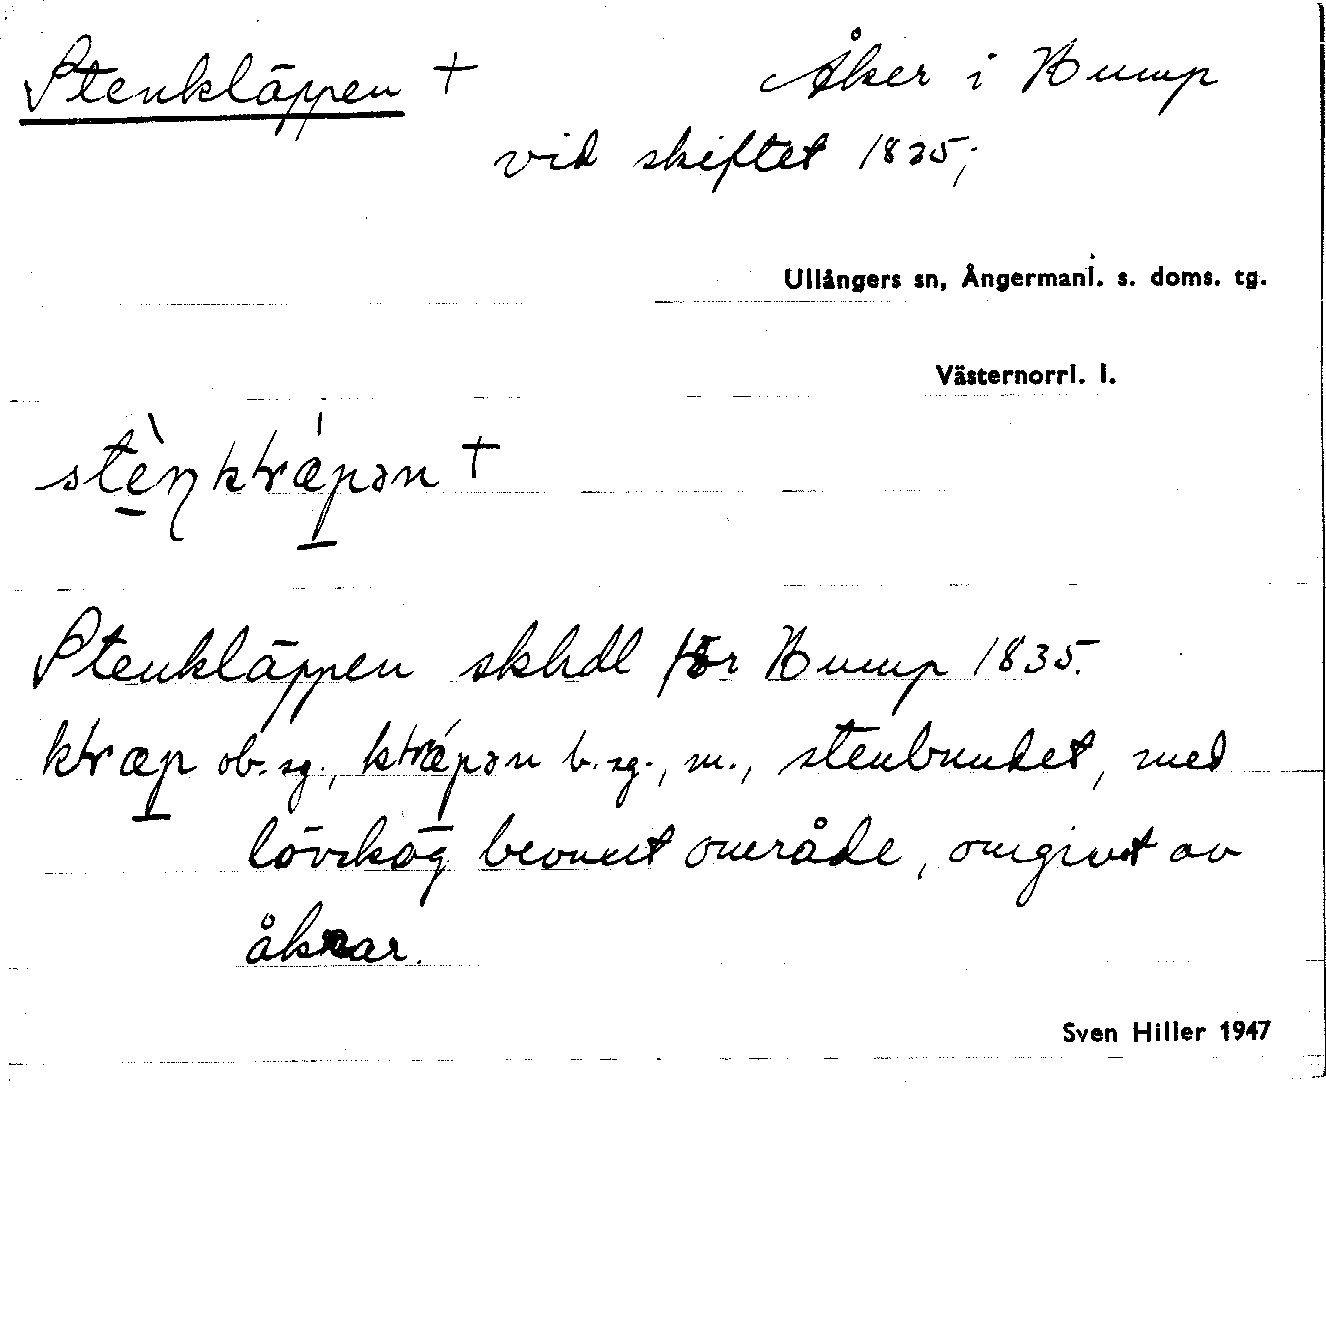 Stenkläppen + Åker i Hump
vid skiftet 1835;
Ullångers sn, Ångermanl. s. doms. tg.
Västernorrl. l.
+
Stenkläppen skhdl för Hump 1835.
ob. sg., b. sg., m., stenbundet, med
lövskog bevuxet område, omgivet av
åkrar.
Sven Hiller 1947